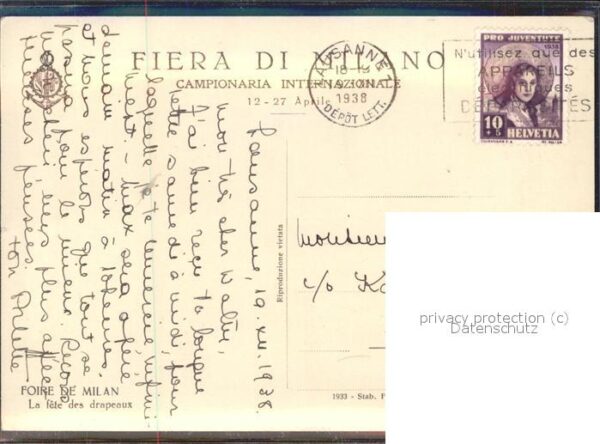 FIERA DI MILANO
CAMPIONARIA INTERNAZIONALE
12 - 27 Aprile
LAUSANNE 1
19.XII.
1938
DÉPÔT LETT.
N'utilisez que des
APPAREILS
électriques
DÉPARASITÉS
PRO JUVENTUTE
1938
10
+5
HELVETIA
Lausanne, 19.XII.1938.
Mon très cher Walter,
J'ai bien reçu ta longue
lettre samedi à midi, pour
laquelle je te remercie infini-
ment. Max sera opéré
demain matin à
et nous espérons que tout se
pour le mieux. Reçois
mon chéri, mes plus affec-
tueuses pensées.
ton
Monsieur
c/o
Riproduzione vietata
FOIRE DE MILAN
La fête des drapeaux
1933 - Stab.
privacy protection (c)
Datenschutz